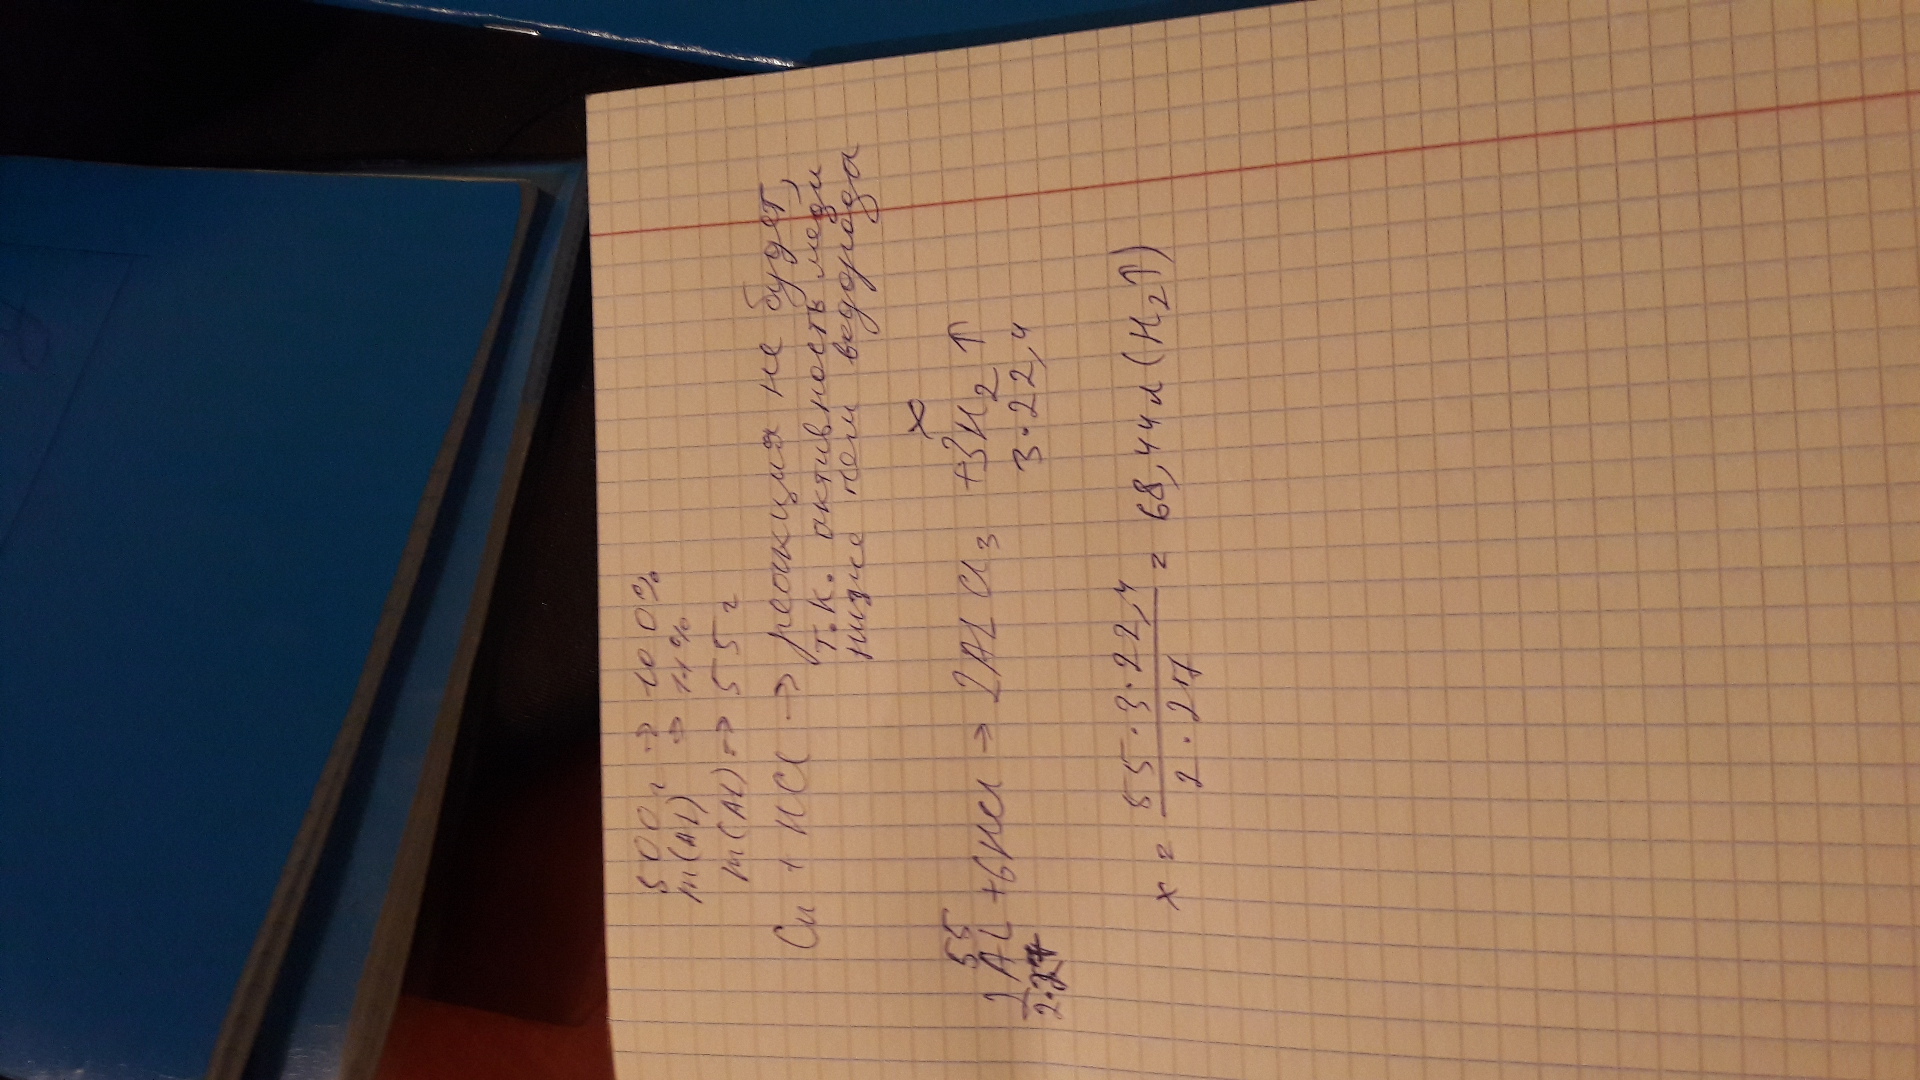 500г → 100%
m(Al) → 11%
m(Al) → 55г
Cu + HCl → реакция не будет,
т.к. активность меди
ниже чем водорода
55 x
2Al + 6HCl → 2AlCl3 + 3H2↑
2·27 3·22,4
x = 55·3·22,4 / 2·27 = 68,44л (H2↑)